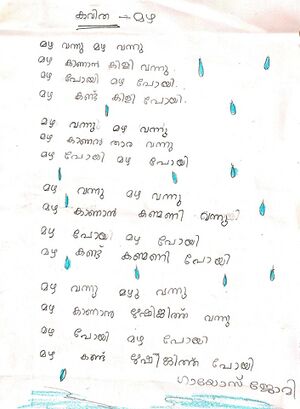 കവിത - മഴ
മഴ വന്നു മഴ വന്നു
മഴ കാണാൻ കിളി വന്നു
മഴ പോയി മഴ പോയി.
മഴ കണ്ട് കിളി പോയി.
മഴ വന്നു മഴ വന്നു
മഴ കാണൻ താര വന്നു
മഴ പോയി മഴ പോയി
മഴ വന്നു മഴ വന്നു
മഴ കാണാൻ കണ്മണി വന്നു
മഴ പോയി മഴ പോയി
മഴ കണ്ട് കണ്മണി പോയി
മഴ വന്നു മഴ വന്നു
മഴ കാണാൻ വന്നു
മഴ പോയി മഴ പോയി
മഴ കണ്ട് പോയി
ഗായോസ് ജോവി